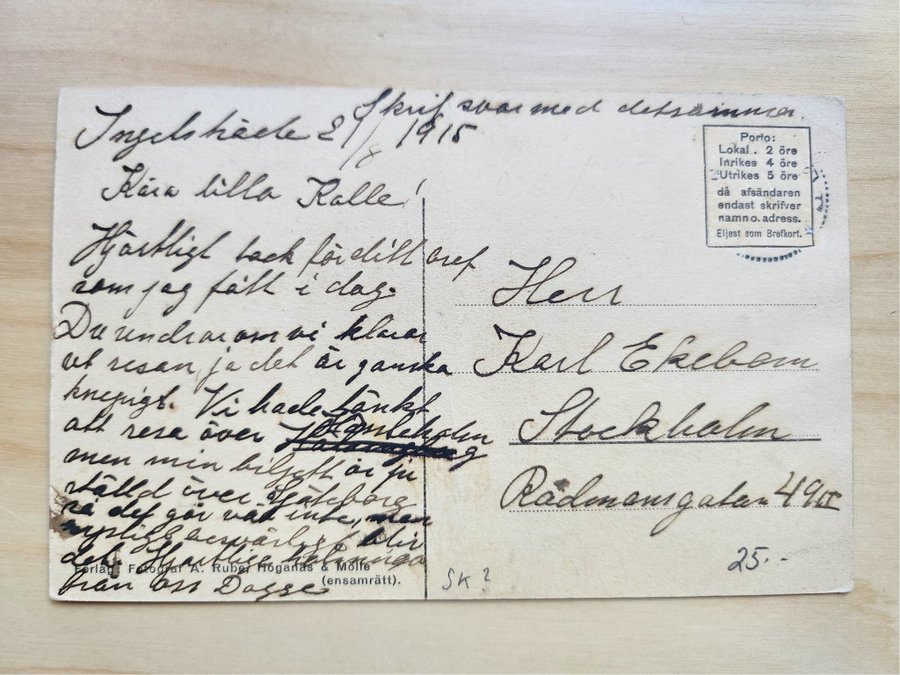 Skrif svar med detsamma.
Ingelsträde 2/8 1915
Kära lilla Kalle!
Hjärtligt tack för ditt bref
som jag fått i dag.
Du undrar om vi klarar
ut resan, ja det är ganska
knepigt. Vi hade tänkt
att resa över Hässleholm
men min biljett är ju
ställd över Göteborg
så det går väl inte, men
det. Hjärtliga hälsningar
från oss Dagge
Förlag: Fotograf A. Rube, Höganäs & Mölle
(ensamrätt).
Porto:
Lokal . 2 öre
Inrikes 4 öre
Utrikes 5 öre
då afsändaren
endast skrifver
namn o. adress.
Eljest som Brefkort.
Herr
Karl Ekebom
Stockholm
Rådmansgatan 49
SK?
25.-